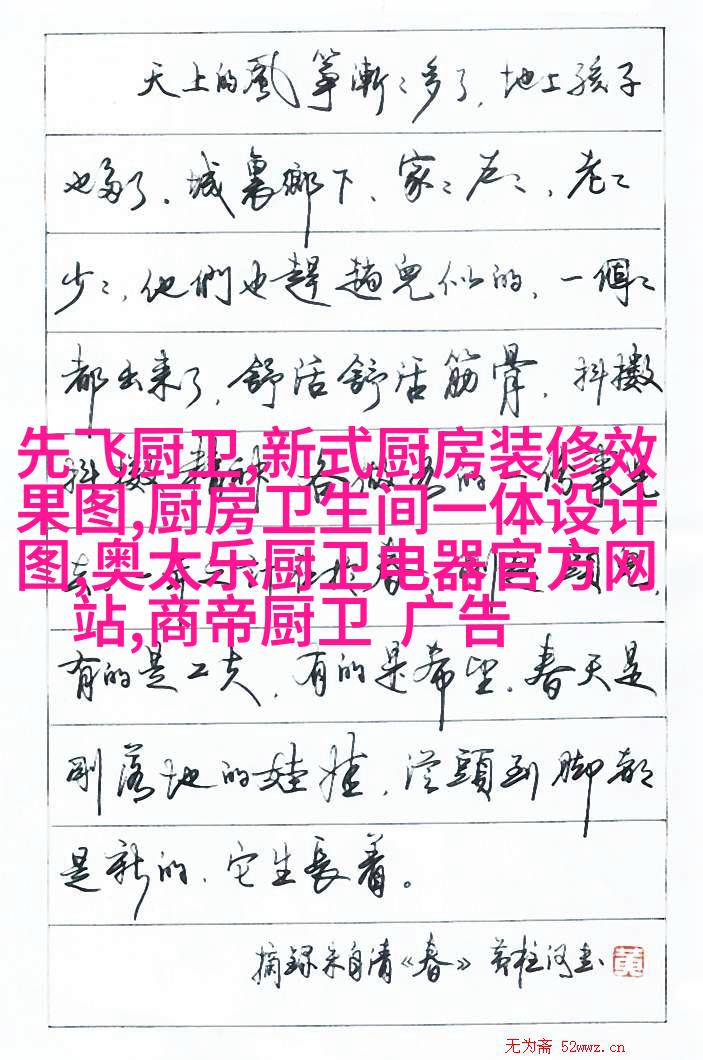 天上的風箏漸〻多了，地上孩子
也多了。城裏鄉下、家〻户〻、老〻
少〻，他們也趕趟兒似的，一個〻
都出来了，舒活舒活筋骨，抖擻
抖擻精神，各做各的一份事去
先飞厨卫,新式厨房装修效
果图,厨房卫生间一体设计
图,奥太乐厨卫电器官方网
站,商帝厨卫 广告
有的是工夫，有的是希望。春天是
剛落地的娃娃，從頭到脚都
是新的，它生長着。
摘録朱自清《春》 黄柱河书
黄
无为斋 52wwz.cn